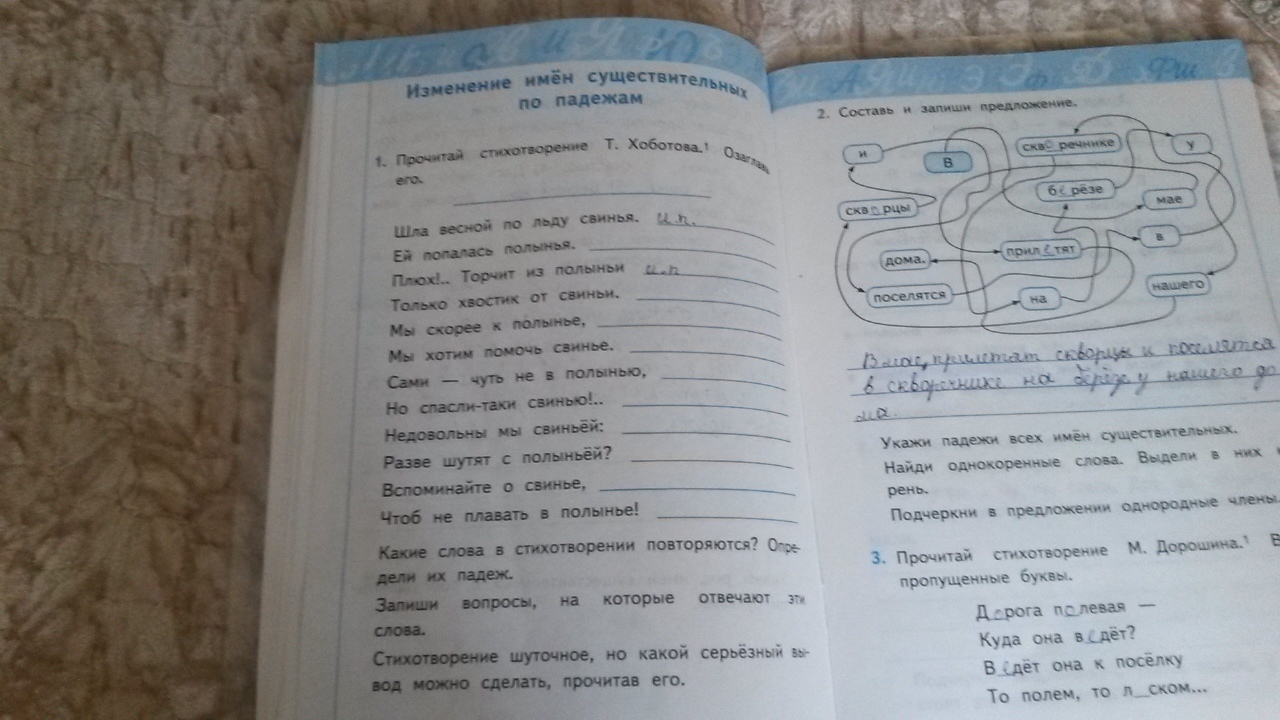 Изменение имён существительных
по падежам
1. Прочитай стихотворение Т. Хоботова.¹ Озаглавь
его.
Шла весной по льду свинья. и.п.
Ей попалась полынья.
Плюх!.. Торчит из полыньи и.п
Только хвостик от свиньи.
Мы скорее к полынье,
Мы хотим помочь свинье.
Сами — чуть не в полынью,
Но спасли-таки свинью!..
Недовольны мы свиньёй:
Разве шутят с полыньёй?
Вспоминайте о свинье,
Чтоб не плавать в полынье!
Какие слова в стихотворении повторяются? Опре-
дели их падеж.
Запиши вопросы, на которые отвечают эти
слова.
Стихотворение шуточное, но какой серьёзный вы-
вод можно сделать, прочитав его.
2. Составь и запиши предложение.
и
В
скворечнике
у
берёзе
скворцы
мае
в
дома.
прилетят
поселятся
на
нашего
В мае, прилетят скворцы и поселятся
в скворечнике на берёзе у нашего до
ма.
Укажи падежи всех имён существительных.
Найди однокоренные слова. Выдели в них
рень.
Подчеркни в предложении однородные члены.
3. Прочитай стихотворение М. Дорошина.¹ В
пропущенные буквы.
Дорога полевая —
Куда она ведёт?
Ведёт она к посёлку
То полем, то л_ском...